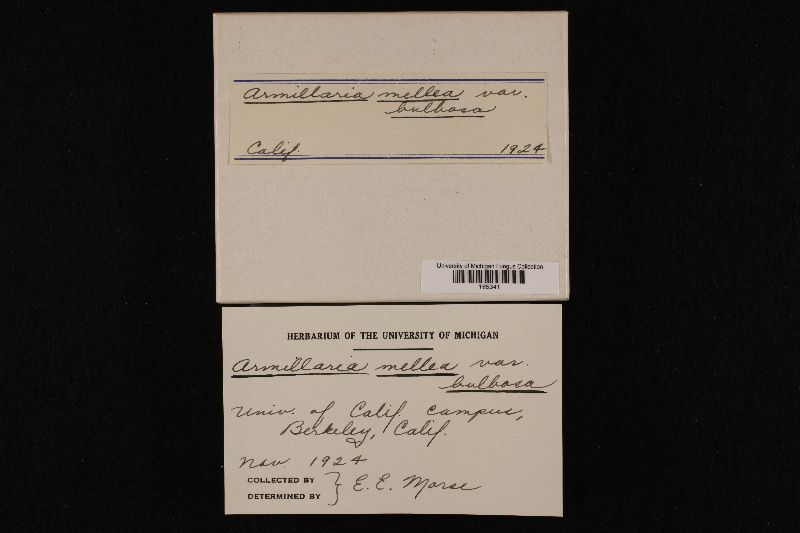 Armillaria mellea var.
bulbosa
Calif. 1924
University of Michigan Fungus Collection
165341
HERBARIUM OF THE UNIVERSITY OF MICHIGAN
Armillaria mellea var.
bulbosa
Univ. of Calif. campus,
Berkeley, Calif.
Nov. 1924
COLLECTED BY
DETERMINED BY } E. E. Morse